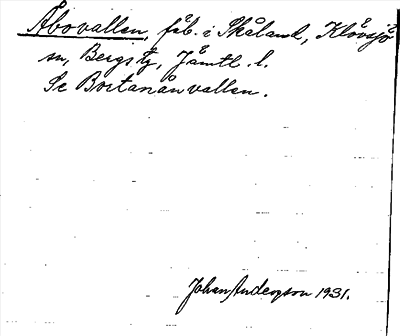 Åbovallen, fäb. i Skåland, Klövsjö
sn, Bergs tg, Jämtl. l.
Se Bortanånvallen.
Johan Anderson 1931.